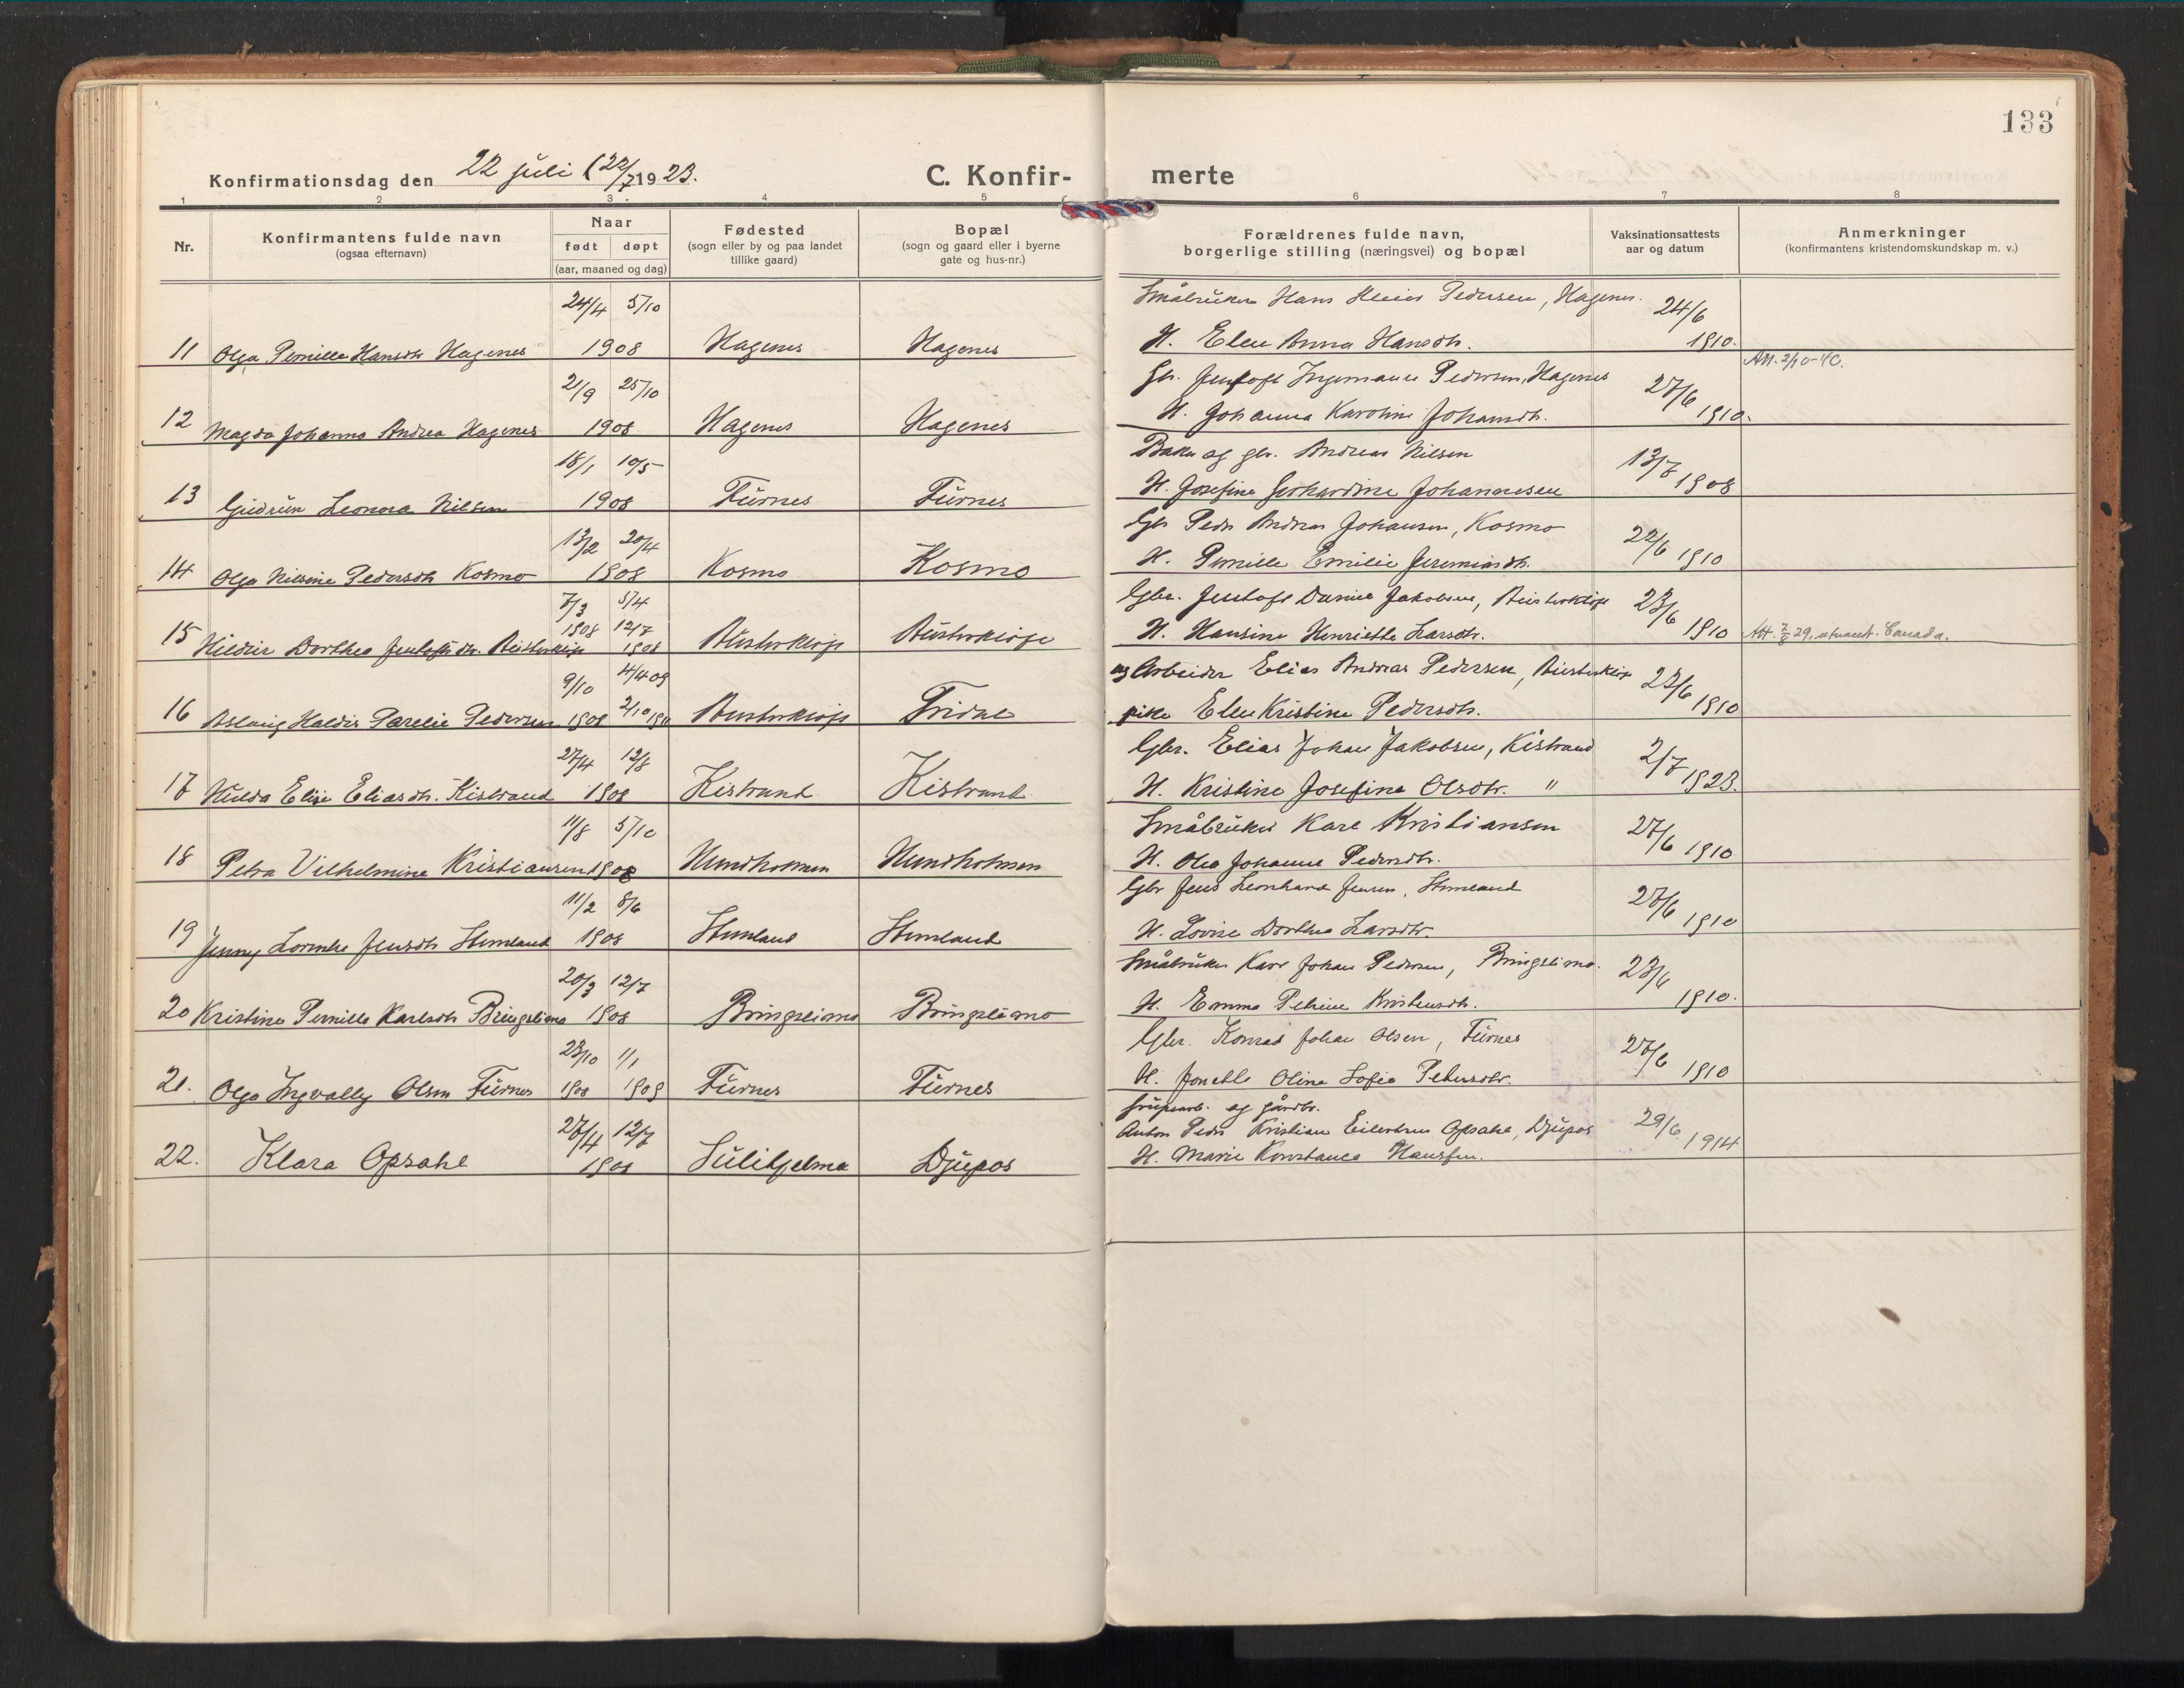 133
Konfirmationsdag den 22 juli (22/7 1923.
C. Konfir- merte
1 2 3 4 5 6 7 8
Nr.
Konfirmantens fulde navn
(ogsaa efternavn)
Naar
født døpt
(aar, maaned og dag)
Fødested
(sogn eller by og paa landet
tillike gaard)
Bopæl
(sogn og gaard eller i byerne
gate og hus-nr.)
Forældrenes fulde navn,
borgerlige stilling (næringsvei) og bopæl
Vaksinationsattests
aar og datum
Anmerkninger
(konfirmantens kristendomskundskap m. v.)
24/4 5/10 Småbruker Hans Pedersen, Hagenes. 24/6
11 Olga Pernille Hansdtr Hagenes 1908 Hagenes Hagenes H. Elen Anna Hansdtr. 1910.
Att. 2/10-40.
21/9 25/10 Gb. Jentoft Ingemann Pedersen, Hagenes 27/6
12 Magda Johanna Andrea Hagenes 1908 Hagenes Hagenes H. Johanna Karoline Johansdtr. 1910.
18/1 10/5 Baker og gbr. Andreas Nilsen 13/7
13 Gudrun Leonora Nilsen 1908 Furnes Furnes H. Josefine Gerhardine Johannesen 1908
13/2 20/4 Gbr Peder Andreas Johansen, Kosmo 22/6
14 Olga Nilsine Pedersdtr Kosmo 1908 Kosmo Kosmo H. Pernille Emilie Jeremiasdtr. 1910
7/3 5/4 Gbr. Jentoft Daniel Jakobsen, Austerkløft 23/6
1908 12/7
15 Hildur Dorthea Jentoftsdtr. Austerkløft 1908 Austerkløft Austerkløft H. Hansine Henriette Larsdtr. 1910 Att. 7/8 29. utvandr. Canada.
9/10 4/4 09 ug Arbeider Elias Andreas Pedersen, Austerkløft 23/6
16 Aslaug Haldis Parelie Pedersen 1908 2/10 1911 Austerkløft pike Elen Kristine Pedersdtr. 1910
27/4 12/8 Gbr. Elias Johan Jakobsen, Kistrand 2/7
17 Hulda Elise Eliasdtr. Kistrand 1908 Kistrand Kistrand H. Kristine Josefine Olsdtr. " 1923.
11/8 5/10 Småbruker Karl Kristiansen 27/6
18 Petra Vilhelmine Kristiansen 1908 Hundholmen Hundholmen H. Olea Johanne Pedersdtr. 1910
11/2 8/6 Gbr Jens Leonhard Jensen, Stemland 27/6
19 Jenny Lorentse Jensdtr Stemland 1908 Stemland Stemland H. Lovise Dorthea Larsdtr. 1910
20/3 12/7 Småbruker Karl Johan Pedersen, Bringslimo. 23/6
20 Kristine Pernille Karlsdtr Bringslimo 1908 Bringslimo Bringslimo H. Emma Petrine Kristensdtr. 1910.
23/10 1/1 Gbr. Konrad Johan Olsen, Furnes 27/6
21. Olga Ingvally Olsen Furnes 1908 1909 Furnes Furnes H. Jonette Oline Sofie Petersdtr. 1910
Grubearb. og gårdbr.
27/4 12/7 Anton Peder Kristian Eilertsen Opsahl, Djupos 29/6
22. Klara Opsahl 1908 Sulitjelma Djupos H. Marie Konstance Hansen. 1914